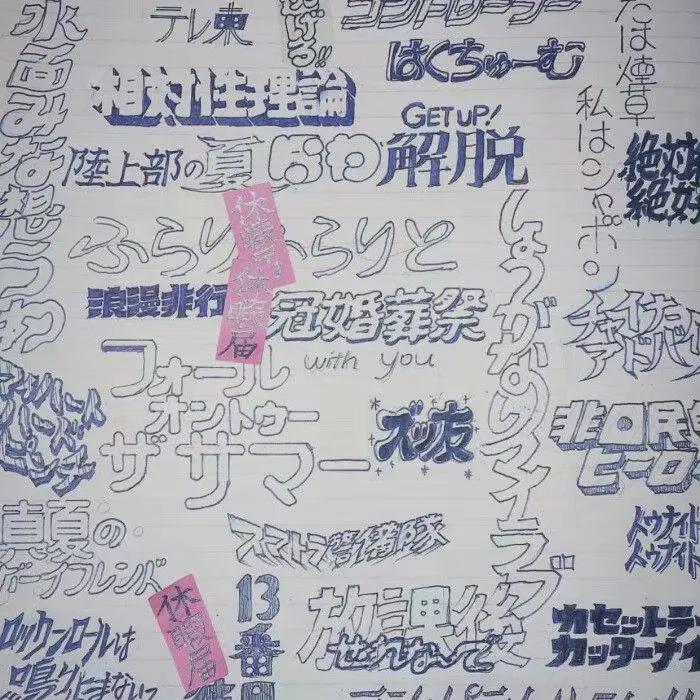 テレ東
コントローラー
はくちゅーむ
相対性理論
GET UP!
陸上部の夏
ほわ
解脱
水面みな想うわ
たは煙草
私はシャボン
絶対
絶対
ふらりふらりと
休暇届
休暇届
浪漫非行
冠婚葬祭
with you
しょうがないのアイラブ
チャイナ
アドバ
フォール
オントゥー
ザ サマー
ズッ友
非国民
ヒーロー
真夏の
ボーイフレンド
スマトラ警備隊
トゥナイト
トゥナイト
休暇届
13番
放課後
せれなーで
カセットテ
カッターナイ
ロックンロールは
鳴り止まないっ